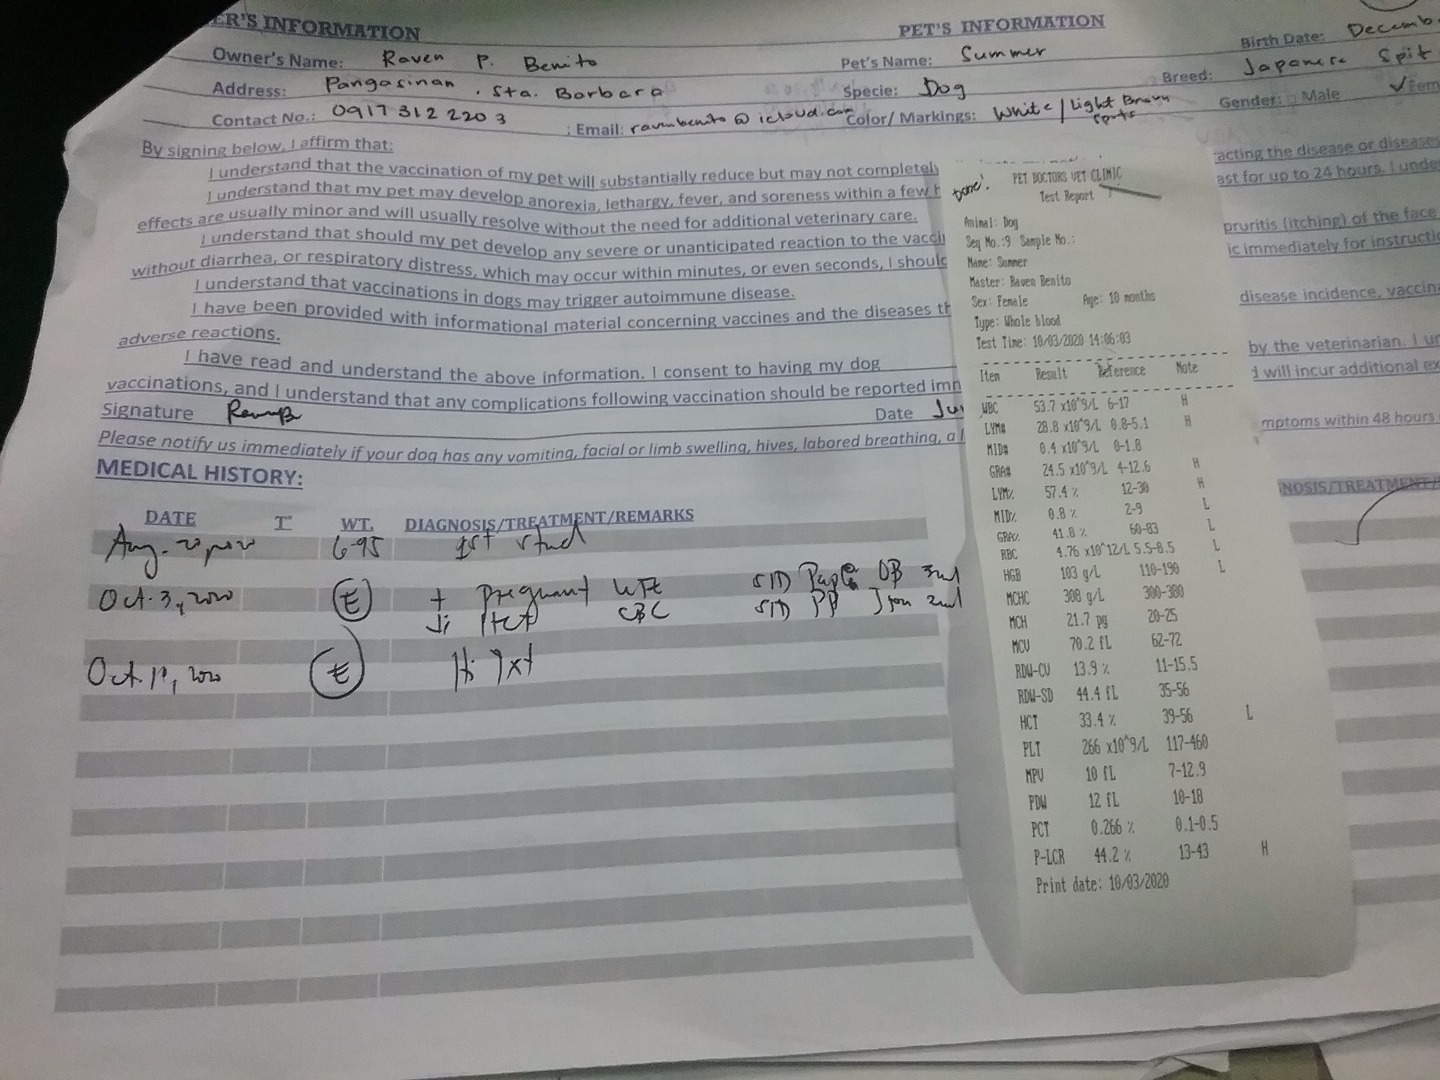 ER'S INFORMATION
PET'S INFORMATION
Owner's Name: Raven P. Benito
Pet's Name: Summer
Birth Date: Decemb
Address: Pangasinan, Sta. Barbara
Specie: Dog
Breed: Japanese Spit
Contact No.: 0917 312 2203
Email: ravenbenito@icloud.com
Color/ Markings: White / Light Brown spots
Gender: Male ✓Fem
By signing below, I affirm that:
I understand that the vaccination of my pet will substantially reduce but may not completel
acting the disease or diseases
I understand that my pet may develop anorexia, lethargy, fever, and soreness within a few h
ast for up to 24 hours. I unde
effects are usually minor and will usually resolve without the need for additional veterinary care.
I understand that should my pet develop any severe or unanticipated reaction to the vacci
pruritis (itching) of the face
without diarrhea, or respiratory distress, which may occur within minutes, or even seconds, I shoul
ic immediately for instructi
I understand that vaccinations in dogs may trigger autoimmune disease.
I have been provided with informational material concerning vaccines and the diseases th
disease incidence, vaccin
adverse reactions.
I have read and understand the above information. I consent to having my dog
by the veterinarian. I un
vaccinations, and I understand that any complications following vaccination should be reported imm
d will incur additional ex
Signature
Date
Please notify us immediately if your dog has any vomiting, facial or limb swelling, hives, labored breathing, a
mptoms within 48 hours
MEDICAL HISTORY:
DATE T° WT. DIAGNOSIS/TREATMENT/REMARKS
NOSIS/TREATMENT/
6.95 1st stud
Oct. 3, 2020 E + Pregnant
CBC
Oct. 2020 E
Done!
PET DOCTORS VET CLINIC
Test Report
Animal: Dog
Seq No.:9 Sample No.:
Name: Summer
Master: Raven Benito
Sex: Female Age: 10 months
Type: Whole blood
Test Time: 10/03/2020 14:06:03
Item Result Reference Note
WBC 53.7 x10^9/L 6-17 H
LYM# 28.8 x10^9/L 0.8-5.1 H
MID# 0.4 x10^9/L 0-1.8
GRA# 24.5 x10^9/L 4-12.6 H
LYM% 57.4 % 12-30 H
MID% 0.8 % 2-9 L
GRA% 41.8 % 60-83 L
RBC 4.76 x10^12/L 5.5-8.5 L
HGB 103 g/L 110-190 L
MCHC 308 g/L 300-380
MCH 21.7 pg 20-25
MCV 70.2 fL 62-72
RDW-CV 13.9 % 11-15.5
RDW-SD 44.4 fL 35-56
HCT 33.4 % 39-56 L
PLT 266 x10^9/L 117-460
MPV 10 fL 7-12.9
PDW 12 fL 10-18
PCT 0.266 % 0.1-0.5
P-LCR 44.2 % 13-43 H
Print date: 10/03/2020